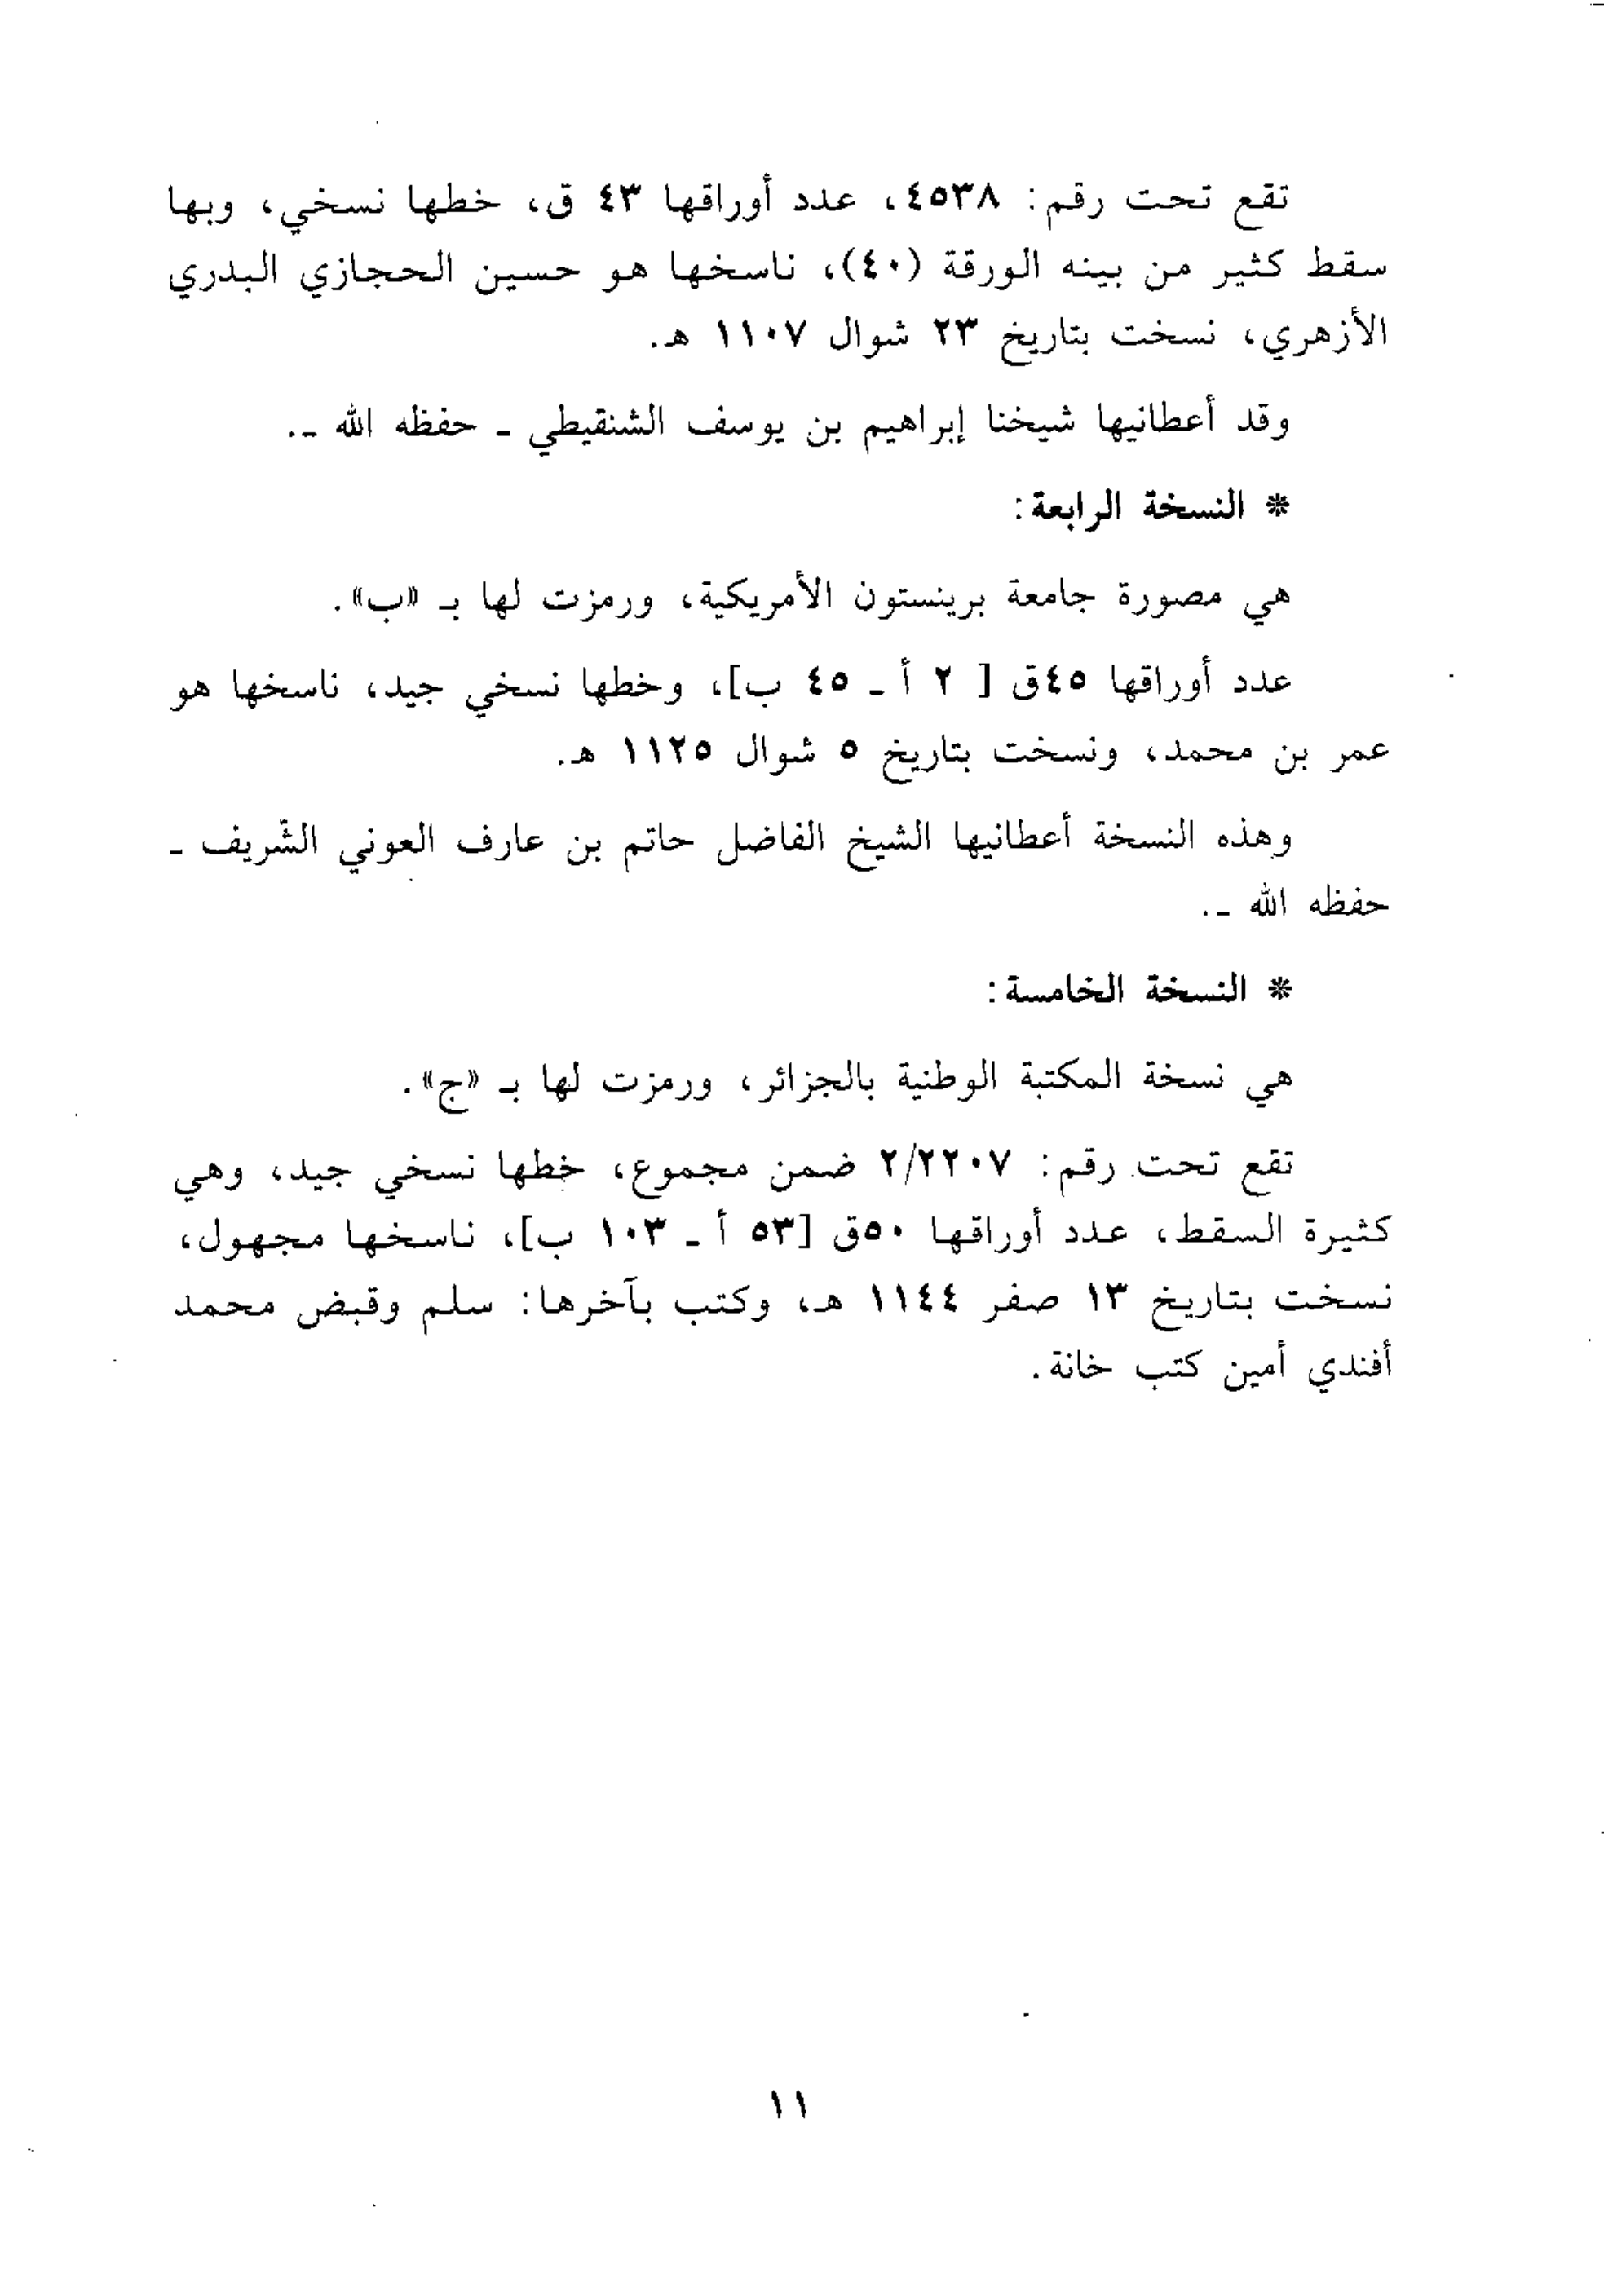 تقع تحت رقم: ٤٥٣٨، عدد أوراقها ٤٣ ق، خطها نسخي، وبها
سقط كثير من بينه الورقة (٤٠)، ناسخها هو حسين الحجازي البدري
الأزهري، نسخت بتاريخ ٢٣ شوال ١١٠٧ هـ.
وقد أعطانيها شيخنا إبراهيم بن يوسف الشنقيطي ـ حفظه الله ـ.
* النسخة الرابعة:
هي مصورة جامعة برينستون الأمريكية، ورمزت لها بـ «ب».
عدد أوراقها ٤٥ق [ ٢ أ ـ ٤٥ ب]، وخطها نسخي جيد، ناسخها هو
عمر بن محمد، ونسخت بتاريخ ٥ شوال ١١٢٥ هـ.
وهذه النسخة أعطانيها الشيخ الفاضل حاتم بن عارف العوني الشّريف ـ
حفظه الله ـ.
* النسخة الخامسة:
هي نسخة المكتبة الوطنية بالجزائر، ورمزت لها بـ «ج».
تقع تحت رقم: ٢/٢٢٠٧ ضمن مجموع، خطها نسخي جيد، وهي
كثيرة السقط، عدد أوراقها ٥٠ق [٥٣ أ ـ ١٠٣ ب]، ناسخها مجهول،
نسخت بتاريخ ١٣ صفر ١١٤٤ هـ، وكتب بآخرها: سلم وقبض محمد
أفندي أمين كتب خانة.
١١